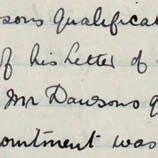 sons qualificat
of his letter of
Mr Dawsons q
ointment was